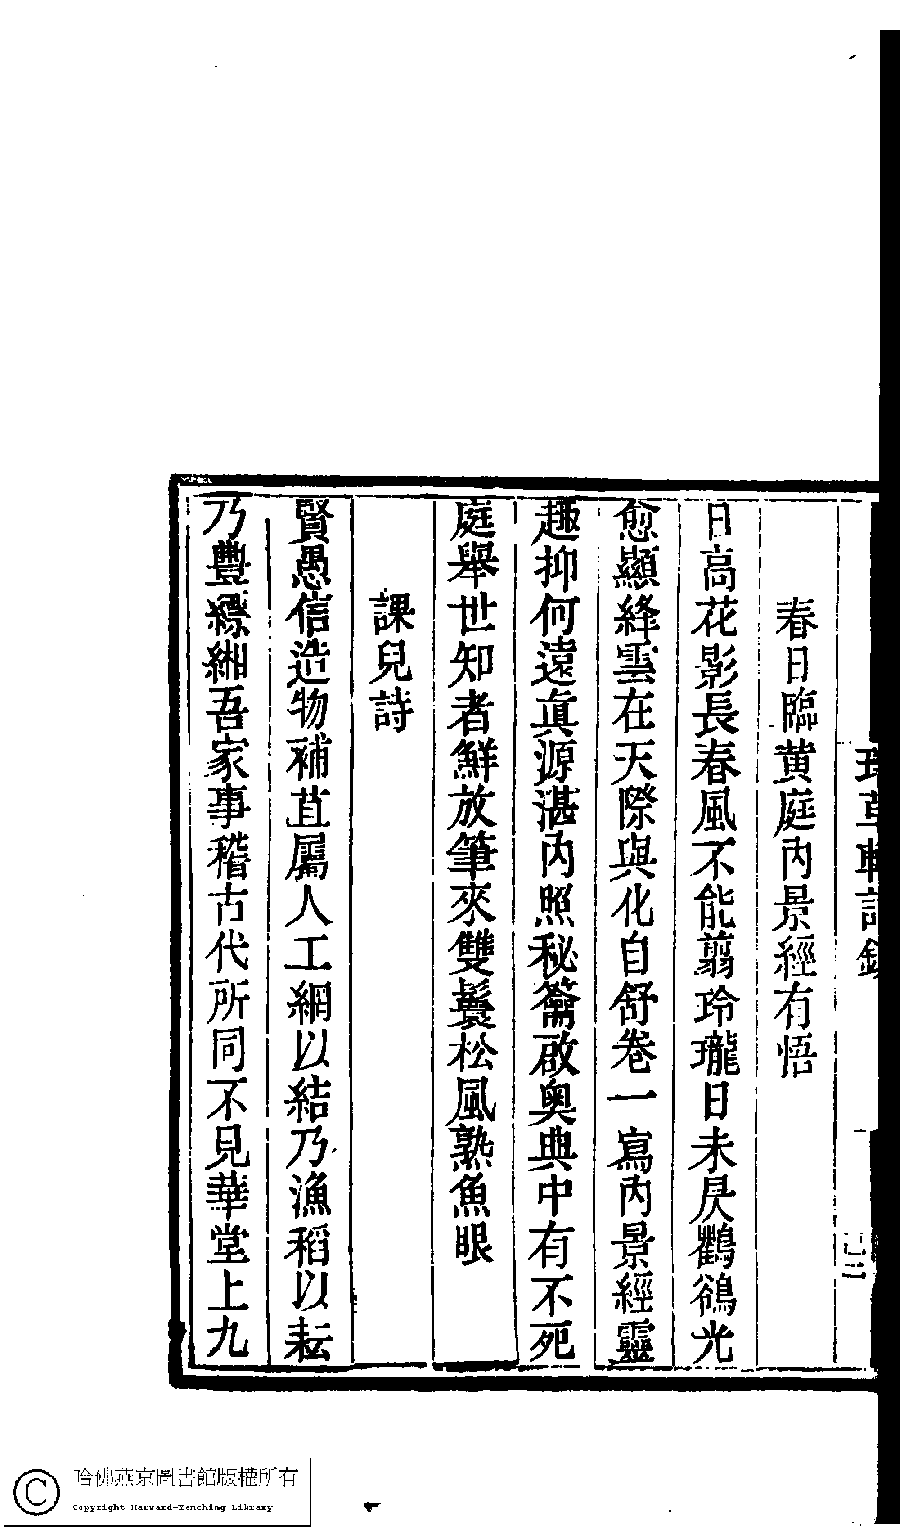 春日臨黄庭内景經有悟
日高花影長春風不能翦玲瓏日未昃鸛鵒光
愈顯絳雲在天際與化自舒卷一寫内景經靈
趣抑何遠眞源湛内照秘籥啟奧典中有不死
庭舉世知者鮮放筆來雙鬟松風熟魚眼
課兒詩
賢愚信造物補苴屬人工網以結乃漁稻以耘
乃豐縹緗吾家事稽古代所同不見華堂上九
哈佛燕京圖書館版權所有
Copyright Harvard-Yenching Library